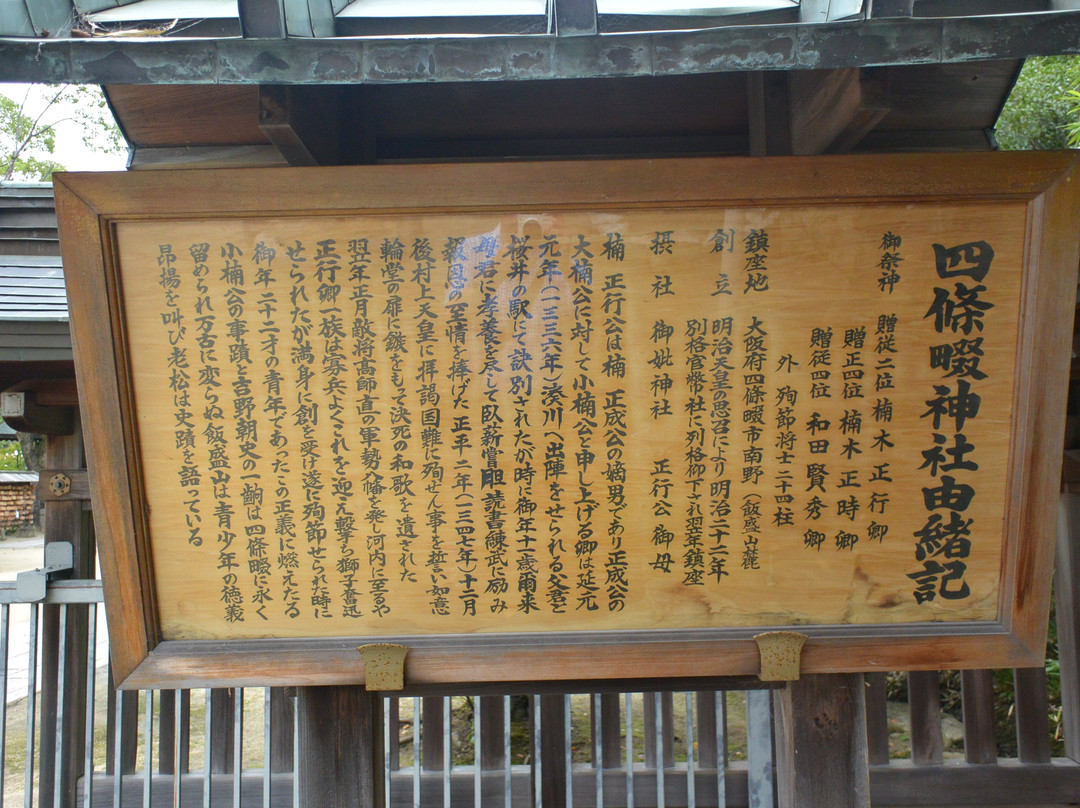 四條畷神社由緒記
御祭神 贈従二位 楠木正行卿
贈正四位 楠木正時卿
贈従四位 和田賢秀卿
外 殉節将士二十四柱
鎮座地 大阪府四條畷市南野（飯盛山麓）
創立 明治天皇の思召により明治二十二年
別格官幣の社に列格御下され翌年鎮座
摂社 御妣神社 正行公御母
楠 正行公は楠 正成公の嫡男であり正成公の
大楠公に対して小楠公と申し上げる卿は延元
元年（一三三六年）湊川へ出陣をせられる父君と
桜井の駅にて訣別されたが時に御年十一歳爾来
母君に孝養を尽して臥薪嘗胆読書練武に励み
報恩の至情を捧げた 正平二年（一三四七年）十二月
後村上天皇に拝謁国難に殉ぜん事を誓い如意
輪堂の扉に鏃をもて決死の和歌を遺された
翌年正月敵将高師直の軍勢八幡を発し河内に至るや
正行卿一族は寡兵よくこれを迎え撃ち獅子奮迅
せられたが満身に創を受け遂に殉節せられた時に
御年二十二才の青年であったこの正義に燃えたる
小楠公の事蹟と吉野朝史の一齣は四條畷に永く
留められ万古に変らぬ飯盛山は青少年の徳義
昂揚を叫び老松は史蹟を語っている